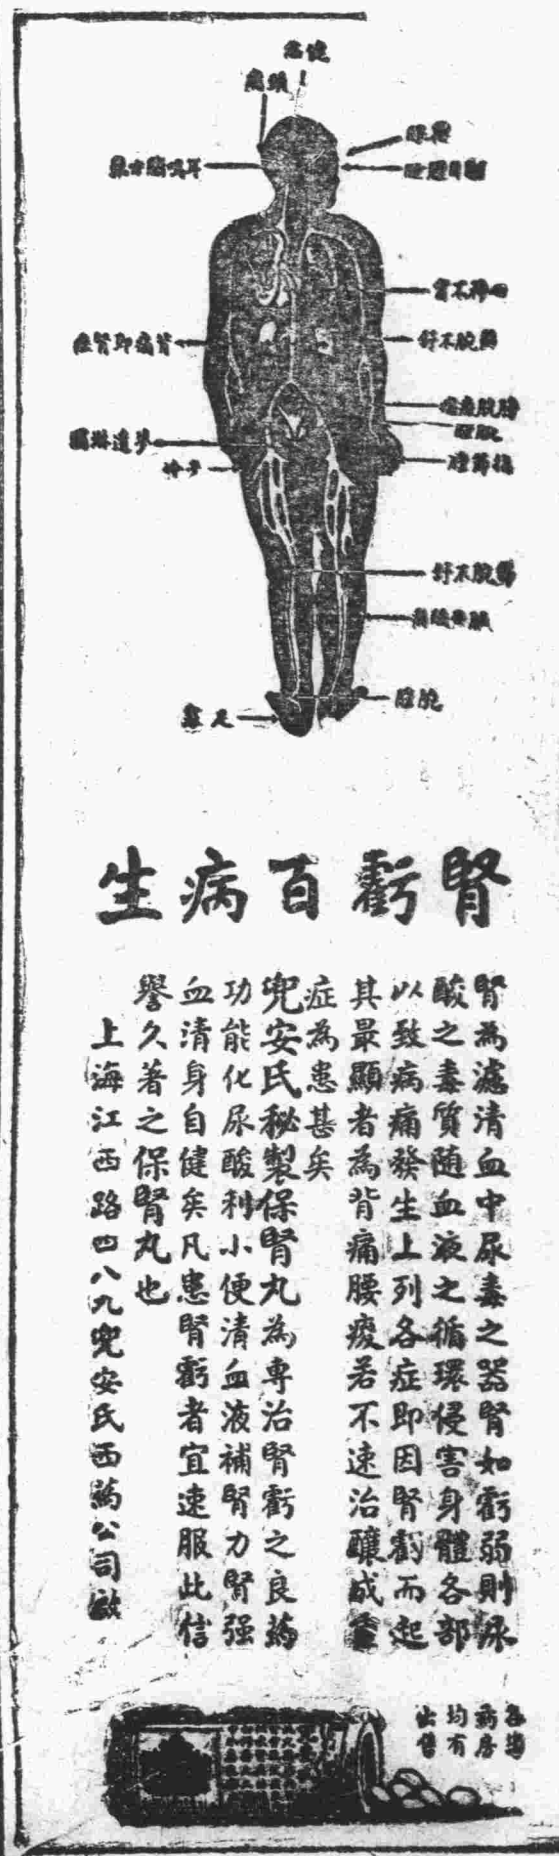 頭痛
眼腫
背痛即腎症
夢遺淋濁
少冷
指節腫
足腫
腎虧百病生
腎為濾清血中尿毒之器腎如虧弱則尿
酸之毒質隨血液之循環侵害身體各部
以致病痛發生上列各症即因腎虧而起
其最顯者為背痛腰痠若不速治釀成
症為患甚矣
兜安氏秘製保腎丸為專治腎虧之良药
功能化尿酸利小便清血液補腎力腎强
血清身自健矣凡患腎虧者宜速服此信
譽久著之保腎丸也
上海江西路四八九兜安氏西药公司啟
各埠
药房
均有
出售